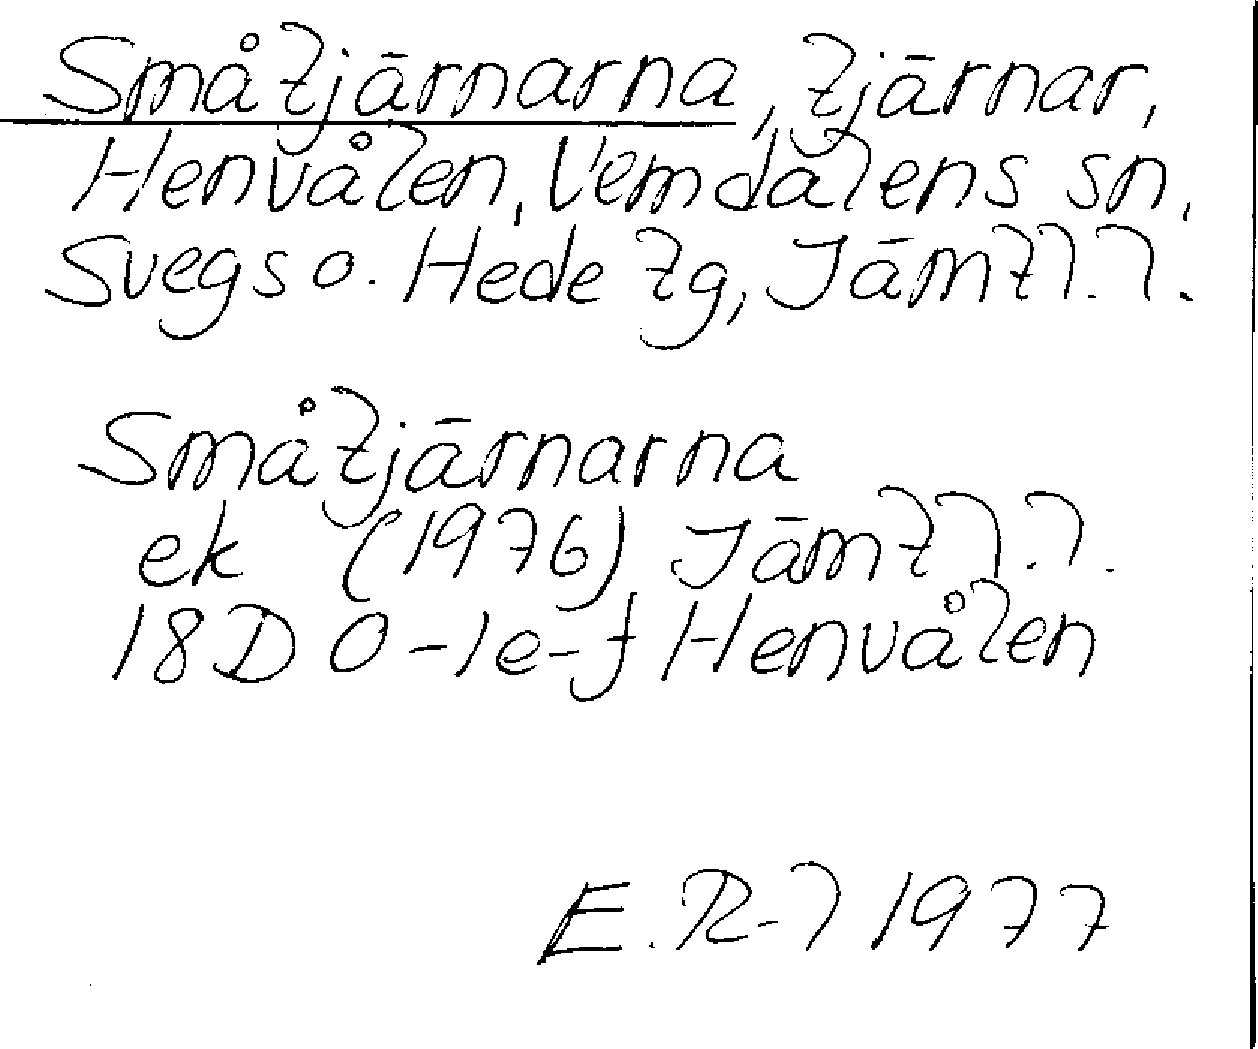 Småtjärnarna, tjärnar,
Henvålen, Vemdalens sn,
Svegs o. Hede tg, Jämtl. l.
Småtjärnarna
ek (1976) Jämtl. l.
18D 0-1e-f Henvålen
E. R-l 1977